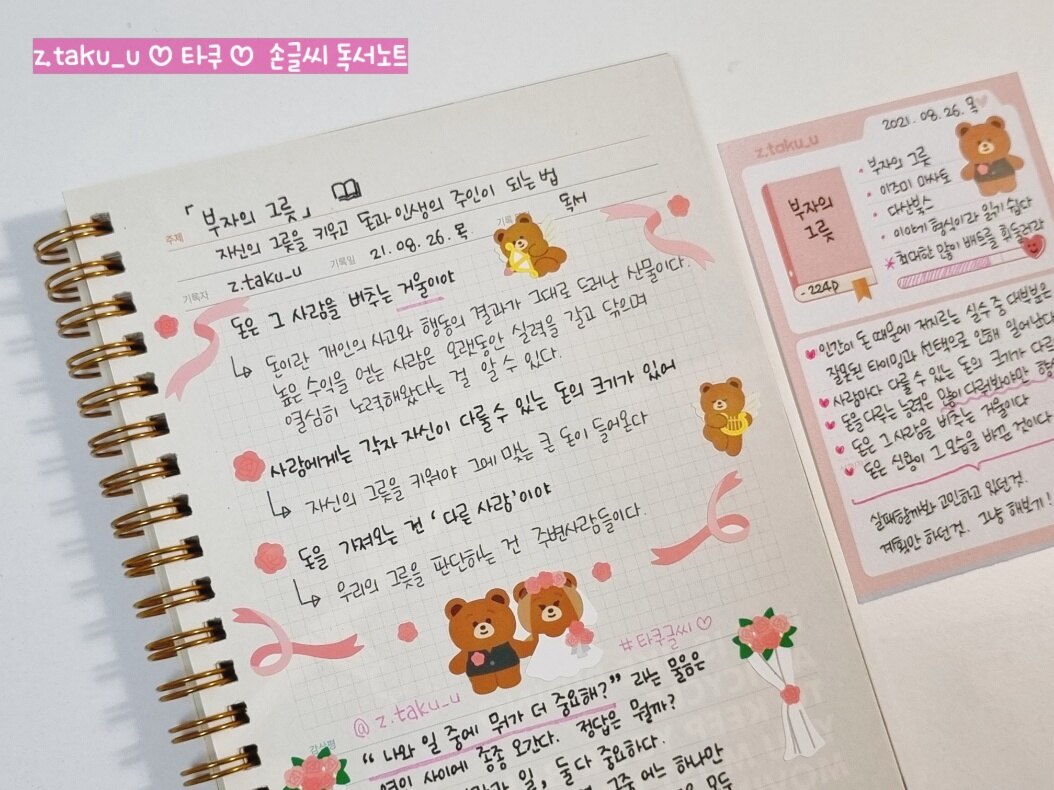 z.taku_u ♡ 타쿠 ♡ 손글씨 독서노트
「부자의 그릇」
주제 재신의 그릇을 키우고 돈과 인생의 주인이 되는 법
기록자 z.taku_u 기록일 21. 08. 26. 목 독서
돈은 그 사람을 비추는 거울이야
↳ 돈이란 개인의 사고와 행동의 결과가 그대로 드러난 산물이다.
높은 수익을 얻는 사람은 오랫동안 실력을 갈고 닦으며
열심히 노력해왔다는 걸 알 수 있다.
사람에게는 각자 자신이 다룰 수 있는 돈의 크기가 있어
↳ 자신의 그릇을 키워야 그에 맞는 큰 돈이 들어온다
돈을 가져오는 건 '다른 사람'이야
↳ 우리의 그릇을 판단하는 건 주변사람들이다.
#타쿠글씨 ♡
@z.taku_u
감상평
"나와 일 중에 뭐가 더 중요해?" 라는 물음은
연인 사이에 종종 오간다. 정답은 뭘까?
일, 둘 다 중요하다.
그중 어느 하나만
모두
z.taku_u
2021. 08. 26. 목
부자의
그릇
-224p
• 부자의 그릇
• 이즈미 마사토
• 다산북스
• 이야기 형식이라 읽기 쉽다
* 최대한 많이 배트를 휘둘러라
인간이 돈 때문에 저지르는 실수 중 대부분은
잘못된 타이밍과 선택으로 인해 일어난다
사람마다 다룰 수 있는 돈의 크기가 다르
돈을 다루는 능력은 많이 다뤄봐야만
돈은 그 사람을 비추는 거울이다
돈은 신용이 그 모습을 바꾼 것이다
실패할까봐 고민하고 있던 것.
계획만 하던 것. 그냥 해보기!